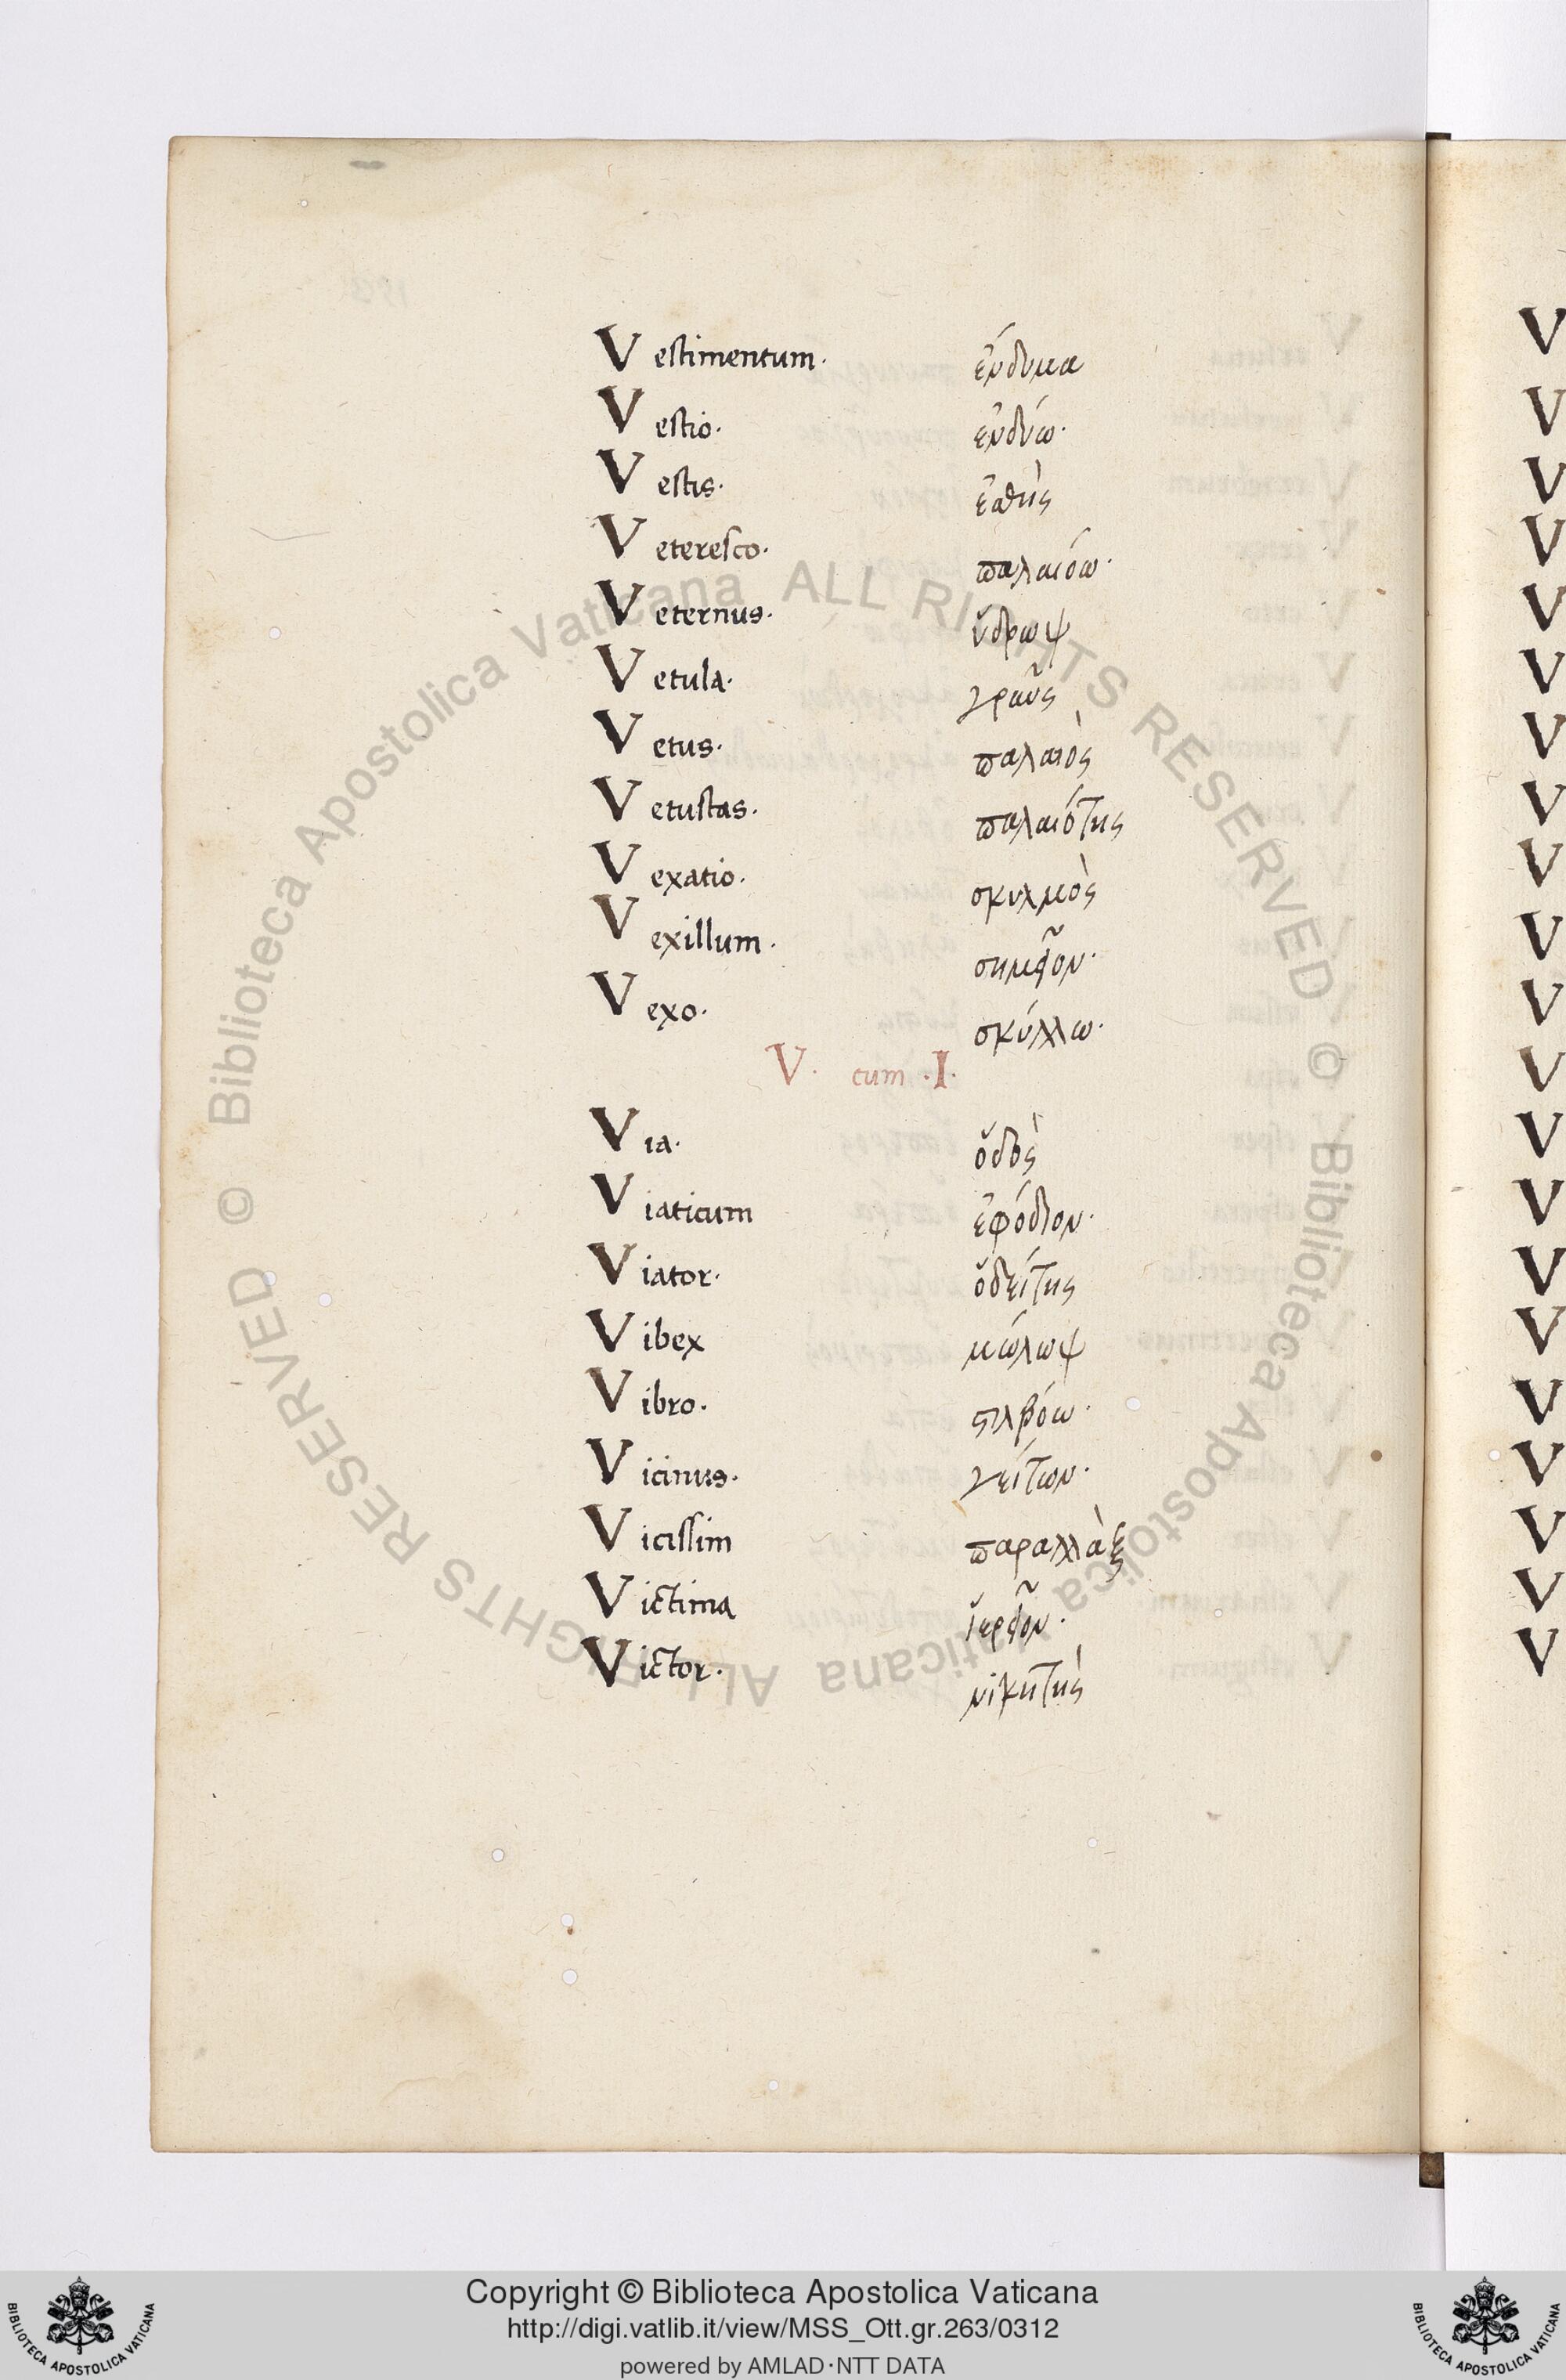 Vestimentum· ἔνδυμα
Vestio· ἐνδύω·
Vestis· ἐσθὴς
Veteresco· παλαιόω·
Veternus· ὕδρωψ
Vetula· γραῦς
Vetus· παλαιὸς
Vetustas· παλαιότης
Vexatio· σκυλμὸς
Vexillum· σημεῖον·
Vexo· σκύλλω·
V· cum ·I·
Via· ὁδὸς
Viaticum ἐφόδιον·
Viator· ὁδείτης
Vibex μώλωψ
Vibro· στιλβόω·
Vicinus· γείτων·
Vicissim παραλλὰξ
Victima ἱερεῖον·
Victor· νικητὴς
© Biblioteca Apostolica Vaticana ALL RIGHTS RESERVED © Biblioteca Apostolica Vaticana ALL RIGHTS RESERVED
Copyright © Biblioteca Apostolica Vaticana
http://digi.vatlib.it/view/MSS_Ott.gr.263/0312
powered by AMLAD·NTT DATA
BIBLIOTECA APOSTOLICA VATICANA
BIBLIOTECA APOSTOLICA VATICANA